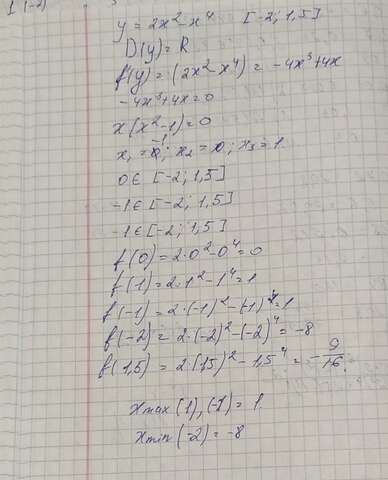 y = 2x² - x⁴ [-2; 1,5]
D(y) = R
f'(y) = (2x² - x⁴) = -4x³ + 4x
-4x³ + 4x = 0
x(x² - 1) = 0
x₁ = -1; x₂ = 0; x₃ = 1
0 ∈ [-2; 1,5]
-1 ∈ [-2; 1,5]
-1 ∈ [-2; 1,5]
f(0) = 2·0² - 0⁴ = 0
f(1) = 2·1² - 1⁴ = 1
f(-1) = 2·(-1)² - (-1)⁴ = 1
f(-2) = 2·(-2)² - (-2)⁴ = -8
f(1,5) = 2·(1,5)² - 1,5⁴ = -9/16
xmax (1), (-1) = 1
xmin (-2) = -8